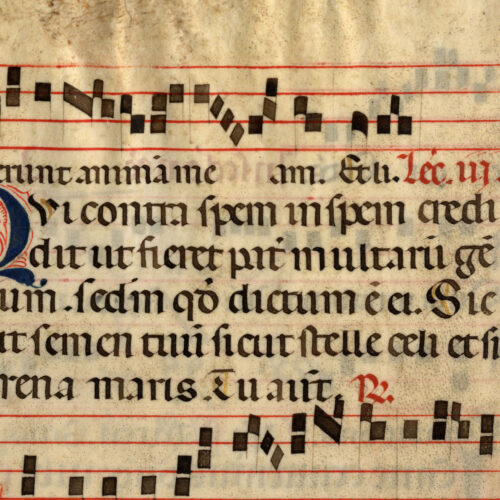 erunt animā me am. Lec. iij.
Qvi contra spem in spem credi
dit ut fieret pat̄ multarū gē
ium. sedm qō dictum ē ei. Sic
it semen tuū sicut stelle celi et si
rena maris. Tu aut̄. R.